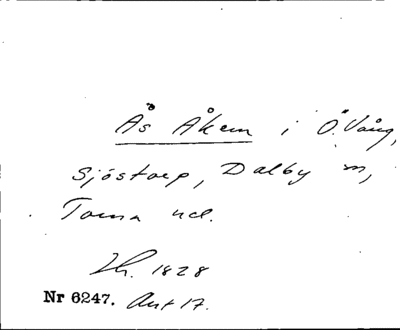 Ås Åkern i Ö. Vång,
Sjöstorp, Dalby sn,
Torna hd.
Lh. 1828
Nr 6247. Akt 17.